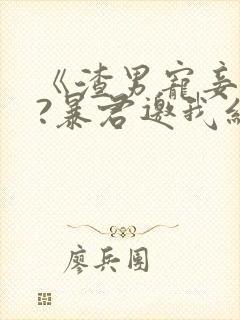 《渣男寵妾
?暴君邀我
廖兵團